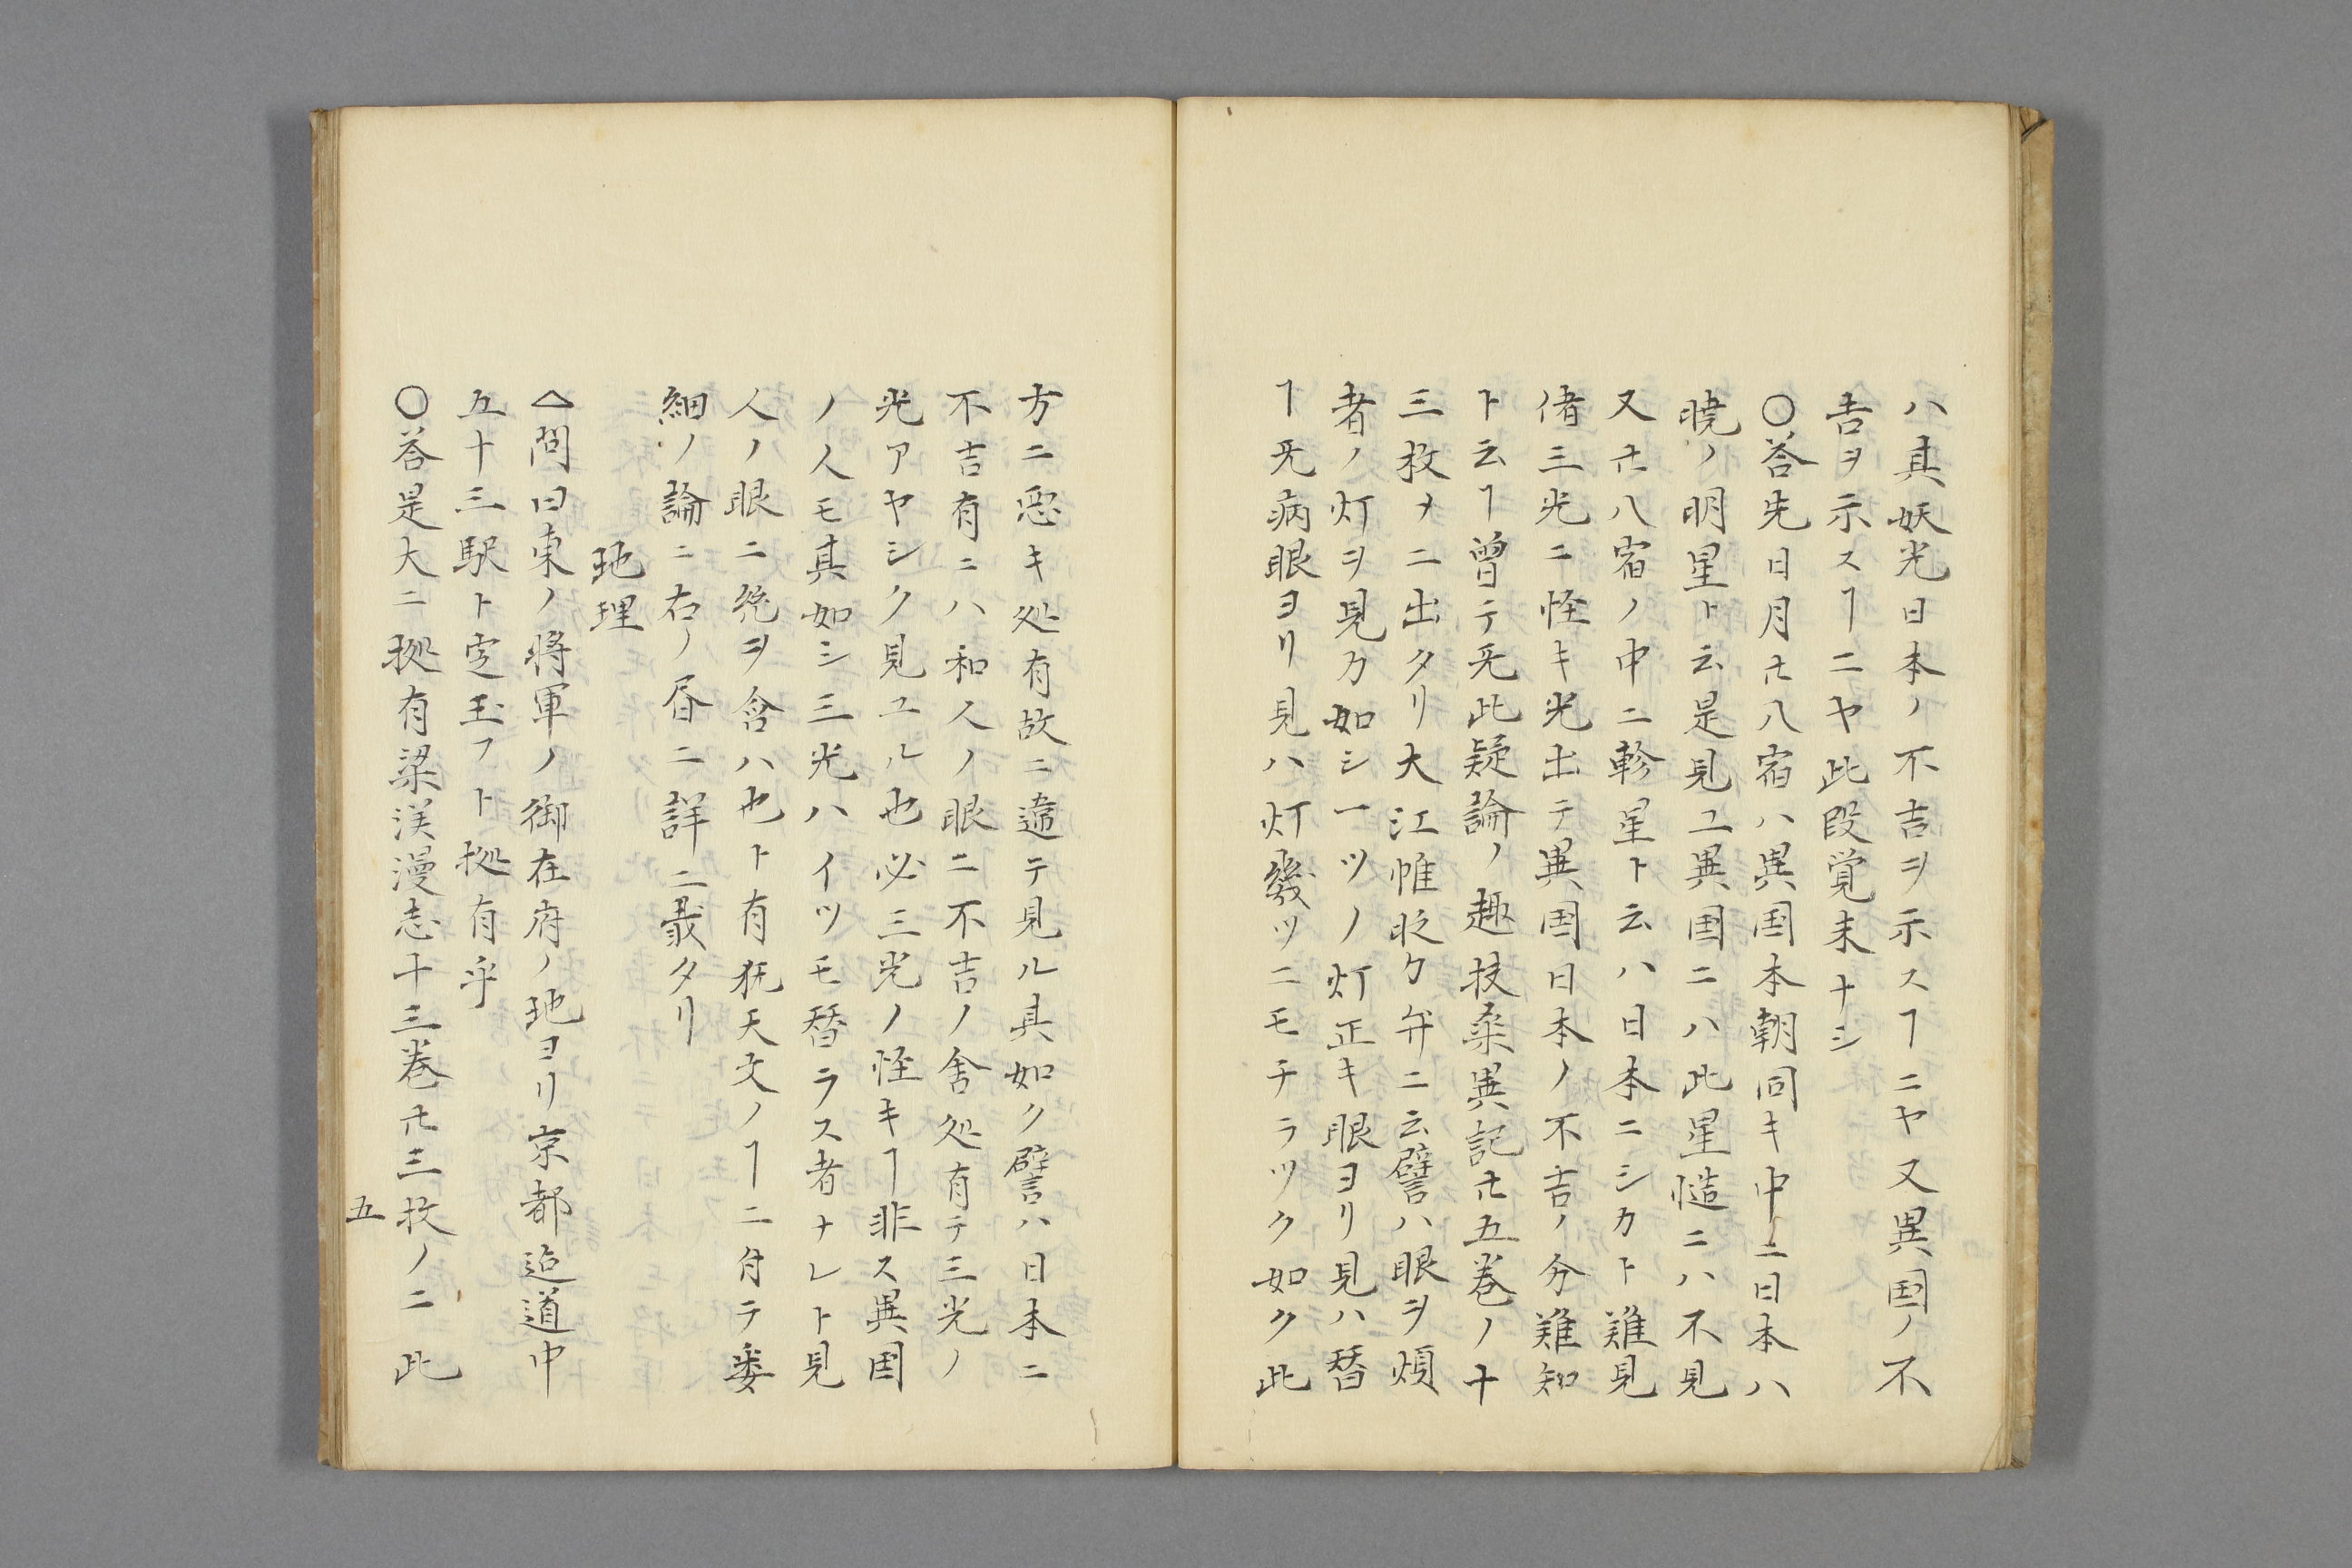 ハ其妖光日本ノ不吉ヲ示スヿニヤ又異国ノ不
吉ヲ示スヿニヤ此段覚束ナシ
○答先日月卄八宿ハ異国本朝同キ中ニ日本ハ
暁ノ明星ト云是見ユ異国ニハ此星慥ニハ不見
又卄八宿ノ中ニ軫星ト云ハ日本ニシカト難見
偖三光ニ怪キ光出テ異国日本ノ不吉ノ分難知
ト云ヿ曽テ旡此疑論ノ趣扶桑異記卄五巻ノ十
三枚ヲニ出タリ大江惟時カ弁ニ云譬ハ眼ヲ煩
者ノ灯ヲ見カ如シ一ツノ灯正キ眼ヨリ見ハ替
ヿ旡病眼ヨリ見ハ灯幾ツニモチラツク如ク此
方ニ悪キ処有故ニ違テ見ル具如ク譬ハ日本ニ
不吉有ニハ和人ノ眼ニ不吉ノ舍処有テ三光ノ
光アヤシク見ユル也必三光ノ怪キヿ非ス異国
ノ人モ其如シ三光ハイツモ替ラス者ナレト見
人ノ眼ニ虼ヲ含ハ也ト有秡天文ノヿニ付テ委
細ノ論ニ右ノ昏ニ詳ニ戢タリ
地理
△問曰東ノ将軍ノ御在府ノ地ヨリ京都迄道中
五十三駅ト定玉フト拠有乎
○答是大ニ拠有梁渓漫志十三巻卄三枚ノニ此
五